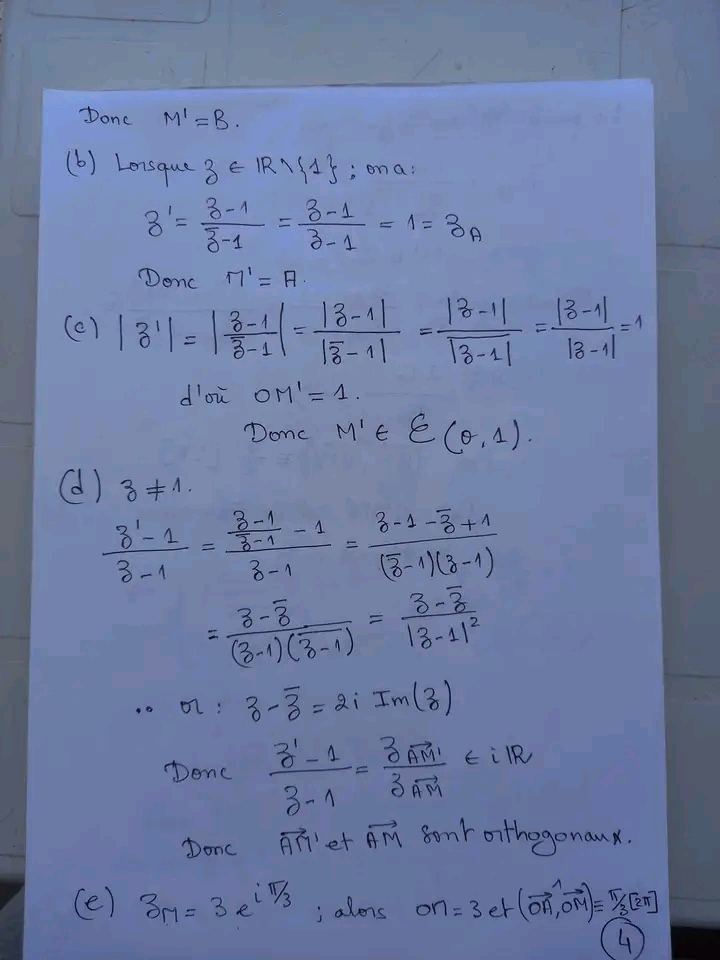 Donc M' = B.
(b) Lorsque z ∈ IR \ {1} ; on a :
z' = (z-1)/(z̄-1) = (z-1)/(z-1) = 1 = z_A
Donc M' = A.
(c) |z'| = |(z-1)/(z̄-1)| = |z-1|/|z̄-1| = |z-1|/|\overline{z-1}| = |z-1|/|z-1| = 1
d'où OM' = 1.
Donc M' ∈ 𝒞(0,1).
(d) z ≠ 1.
(z'-1)/(z-1) = ((z-1)/(z̄-1) - 1)/(z-1) = (z-1-z̄+1)/((z̄-1)(z-1))
= (z-z̄)/((z-1)(\overline{z-1})) = (z-z̄)/|z-1|²
•• or : z-z̄ = 2i Im(z)
Donc (z'-1)/(z-1) = z_{\overrightarrow{AM'}}/z_{\overrightarrow{AM}} ∈ iIR
Donc \overrightarrow{AM'} et \overrightarrow{AM} sont orthogonaux.
(e) z_M = 3e^{iπ/3} ; alors OM = 3 et (\widehat{\overrightarrow{OA},\overrightarrow{OM}}) ≡ π/3 [2π]
4